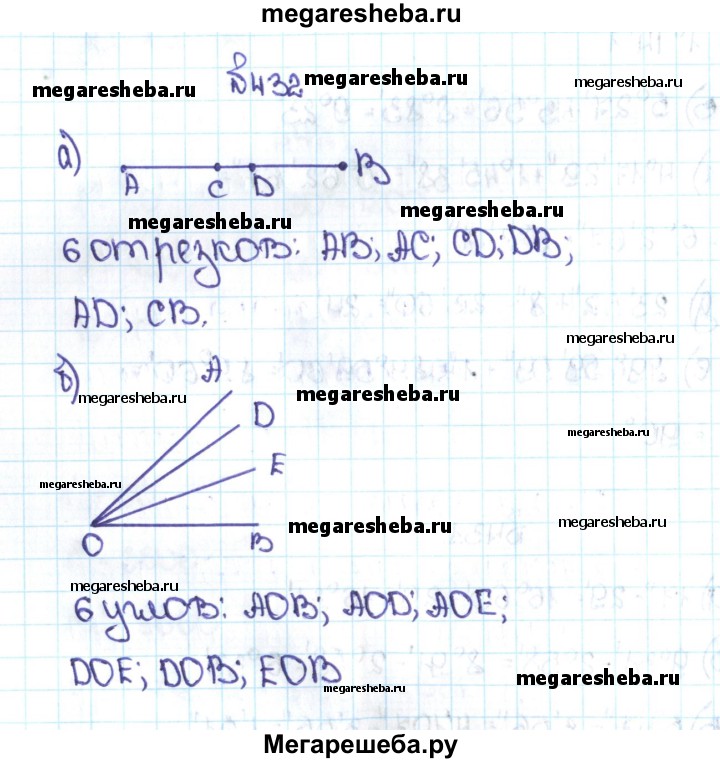 megaresheba.ru
№432
megaresheba.ru megaresheba.ru megaresheba.ru
а)
A C D B
megaresheba.ru megaresheba.ru
6 отрезков: AB; AC; CD; DB;
AD; CB.
megaresheba.ru
б)
A
megaresheba.ru megaresheba.ru
D
megaresheba.ru
E
megaresheba.ru
megaresheba.ru megaresheba.ru
O B
megaresheba.ru
6 углов: AOB; AOD; AOE;
DOE; DOB; EOB
megaresheba.ru megaresheba.ru
Мегарешеба.ру